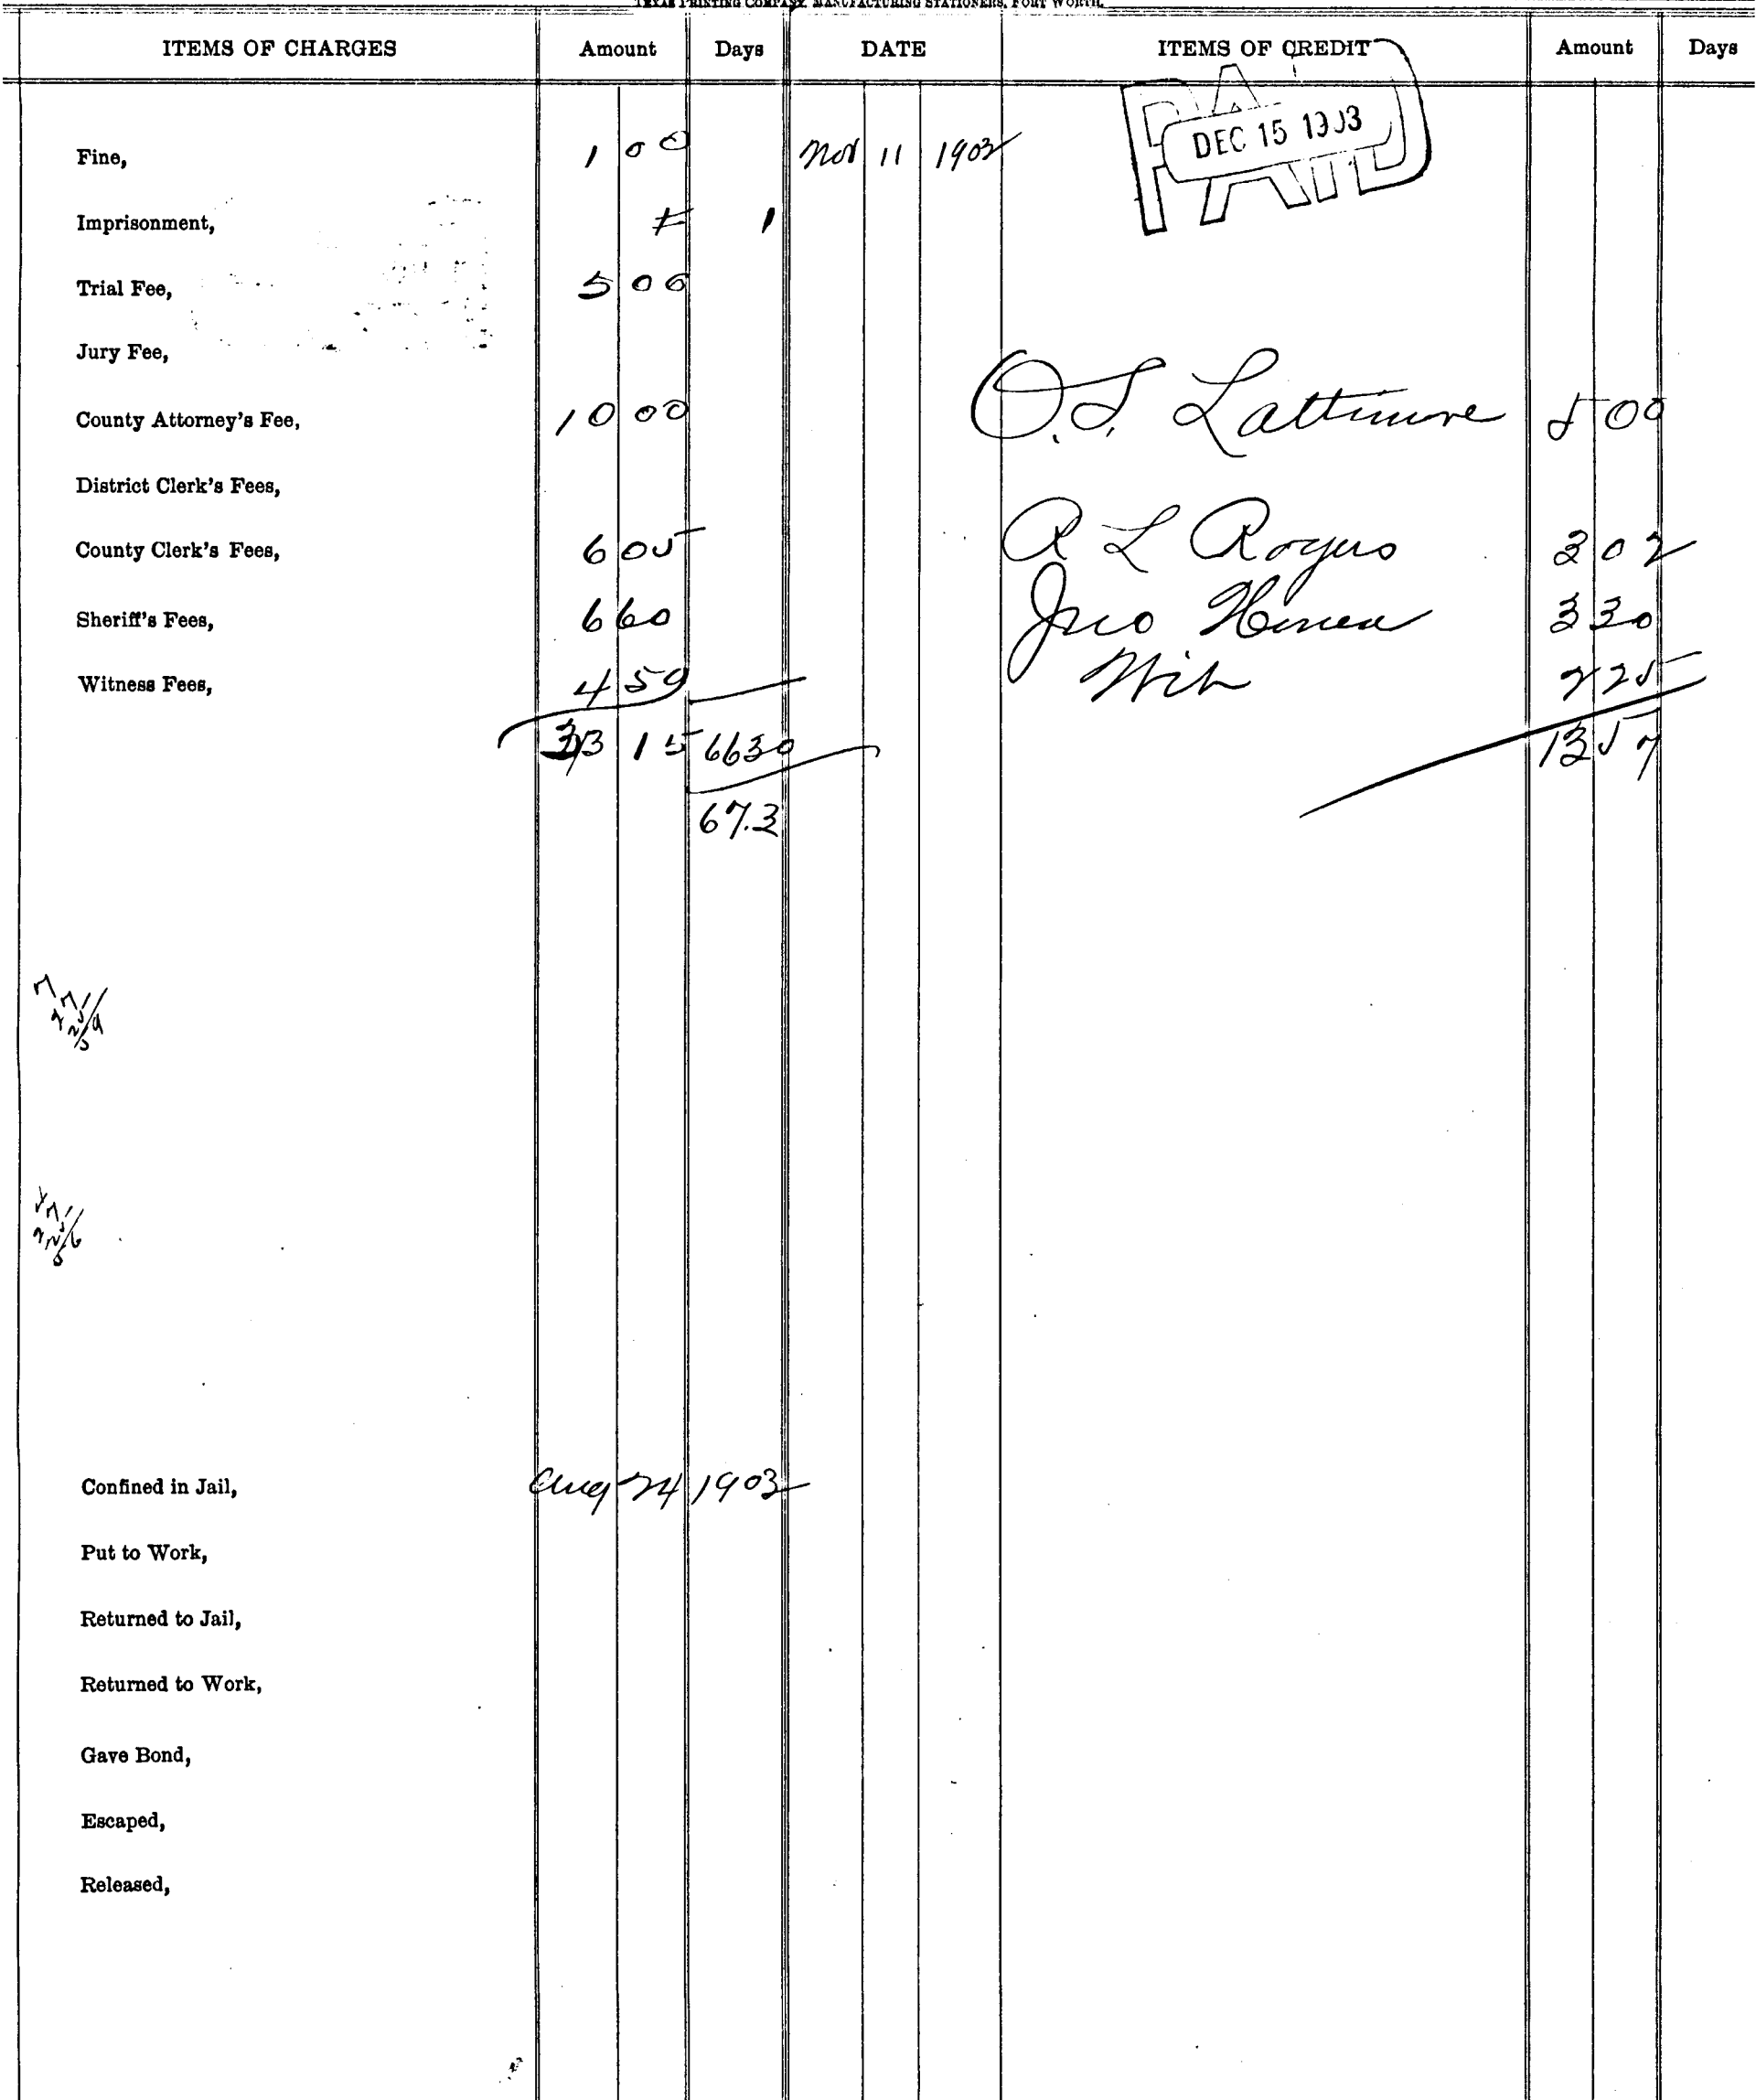 TEXAS PRINTING COMPANY, MANUFACTURING STATIONERS, FORT WORTH.
ITEMS OF CHARGES Amount Days DATE ITEMS OF CREDIT Amount Days
PAID
DEC 15 1903
Fine, 1 00 Nov 11 1903
Imprisonment, 1
Trial Fee, 5 00
Jury Fee,
County Attorney's Fee, 10 00 O.S. Lattimore 5 00
District Clerk's Fees,
County Clerk's Fees, 6 05 R L Rogers 3 02
Sheriff's Fees, 6 60 Jno Honea 3 30
Witness Fees, 4 50 Wit 2 25
33 15 66 30 13 57
67.3
Confined in Jail, Aug 24 1903
Put to Work,
Returned to Jail,
Returned to Work,
Gave Bond,
Escaped,
Released,